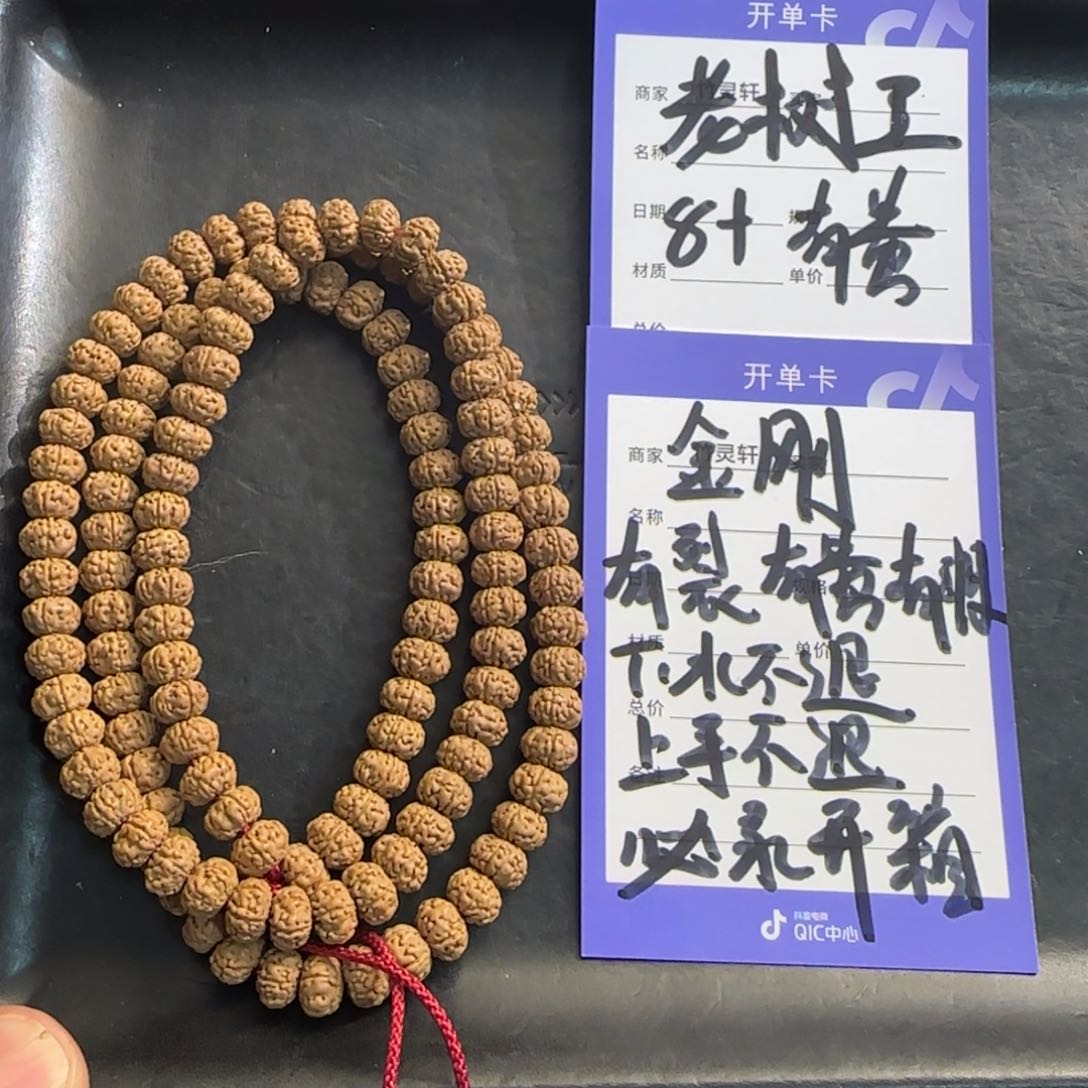 开单卡
商家 竹灵轩
老树王
名称
日期 规格
8+ 有黄
材质 单价
总价
开单卡
金刚
商家 竹灵轩
名称
有裂 有黄 有瑕
日期 规格
材质 单价
下水不退
总价
上手不退
必录开箱
抖音电商
QIC中心